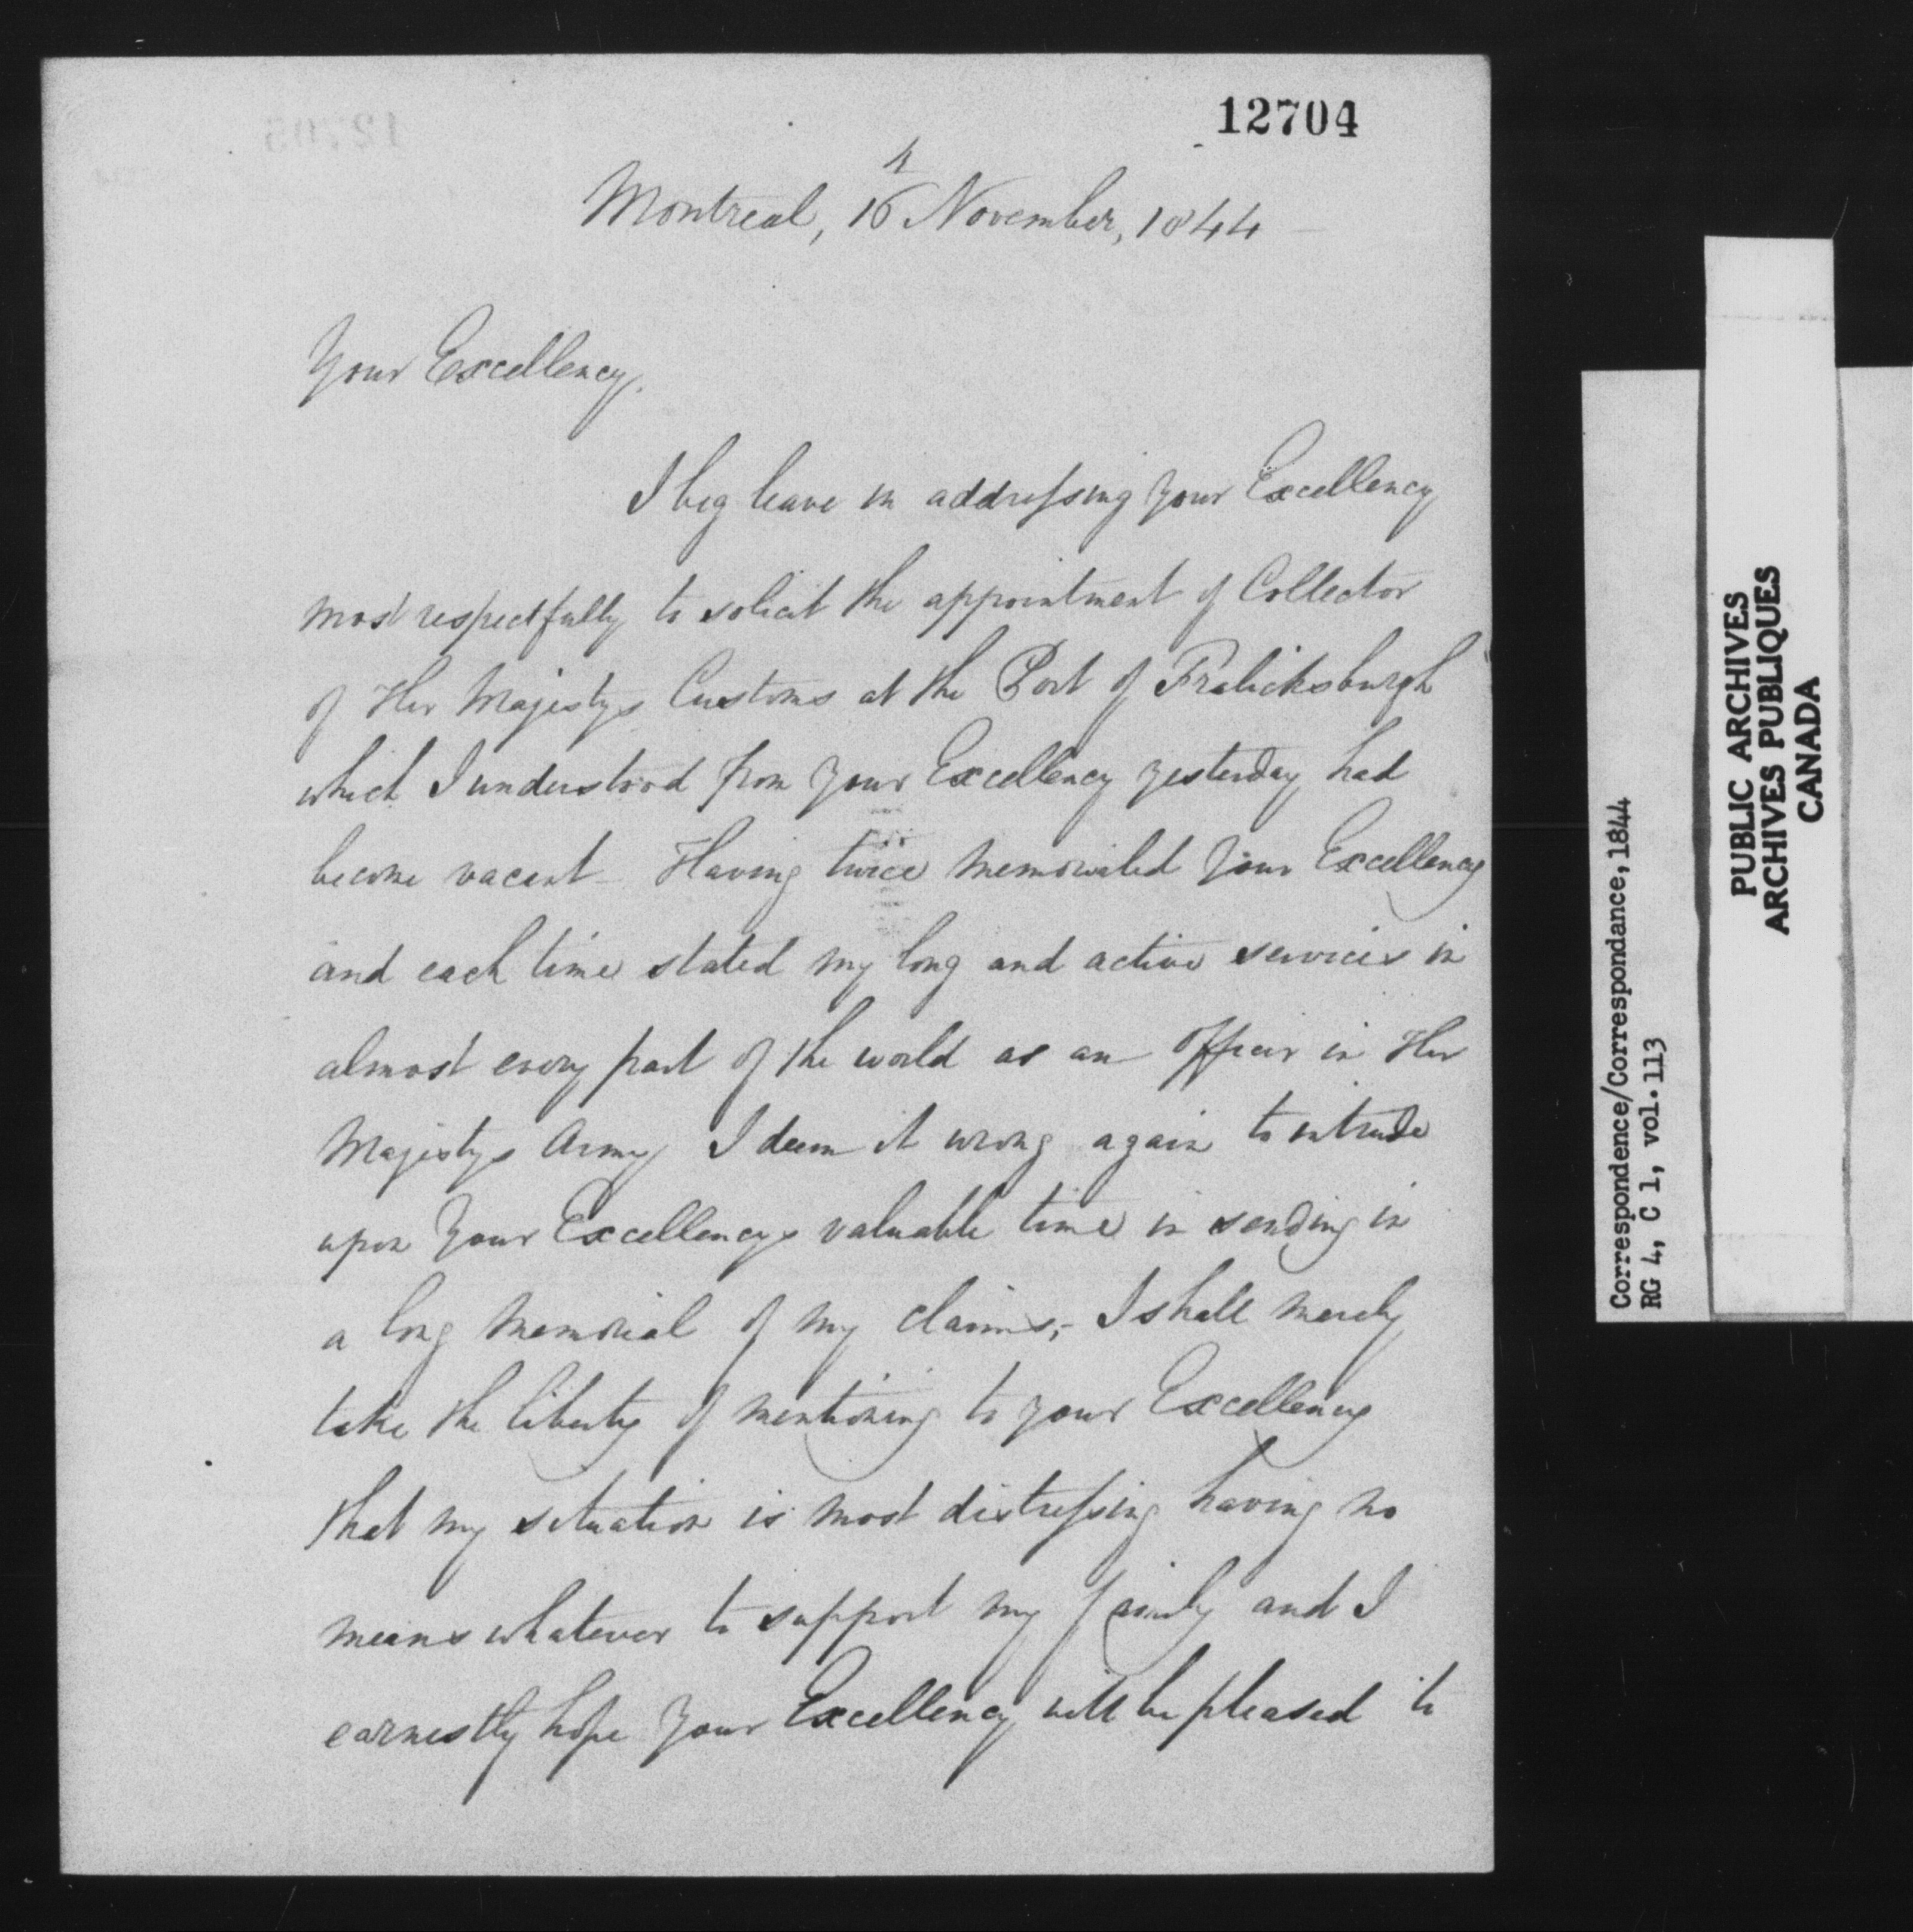 12704
Montreal, 16th November, 1844
Your Excellency,
I beg leave in addressing Your Excellency
most respectfully to solicit the appointment of Collector
of Her Majestys Customs at the Port of Fralicksburgh
which I understood from Your Excellency yesterday had
become vacant - Having twice memorialed Your Excellency
and each time stated my long and active services in
almost every part of the world as an Officer in Her
Majestys Army I deem it wrong again to intrude
upon Your Excellencys valuable time in sending in
a long memorial of my claims;- I shall merely
take the liberty of mentioning to your Excellency
that my situation is most distressing having no
means whatever to support my family and I
earnestly hope Your Excellency will be pleased to
Correspondence/Correspondance, 1844
RG 4, C 1, vol. 113
PUBLIC ARCHIVES
ARCHIVES PUBLIQUES
CANADA